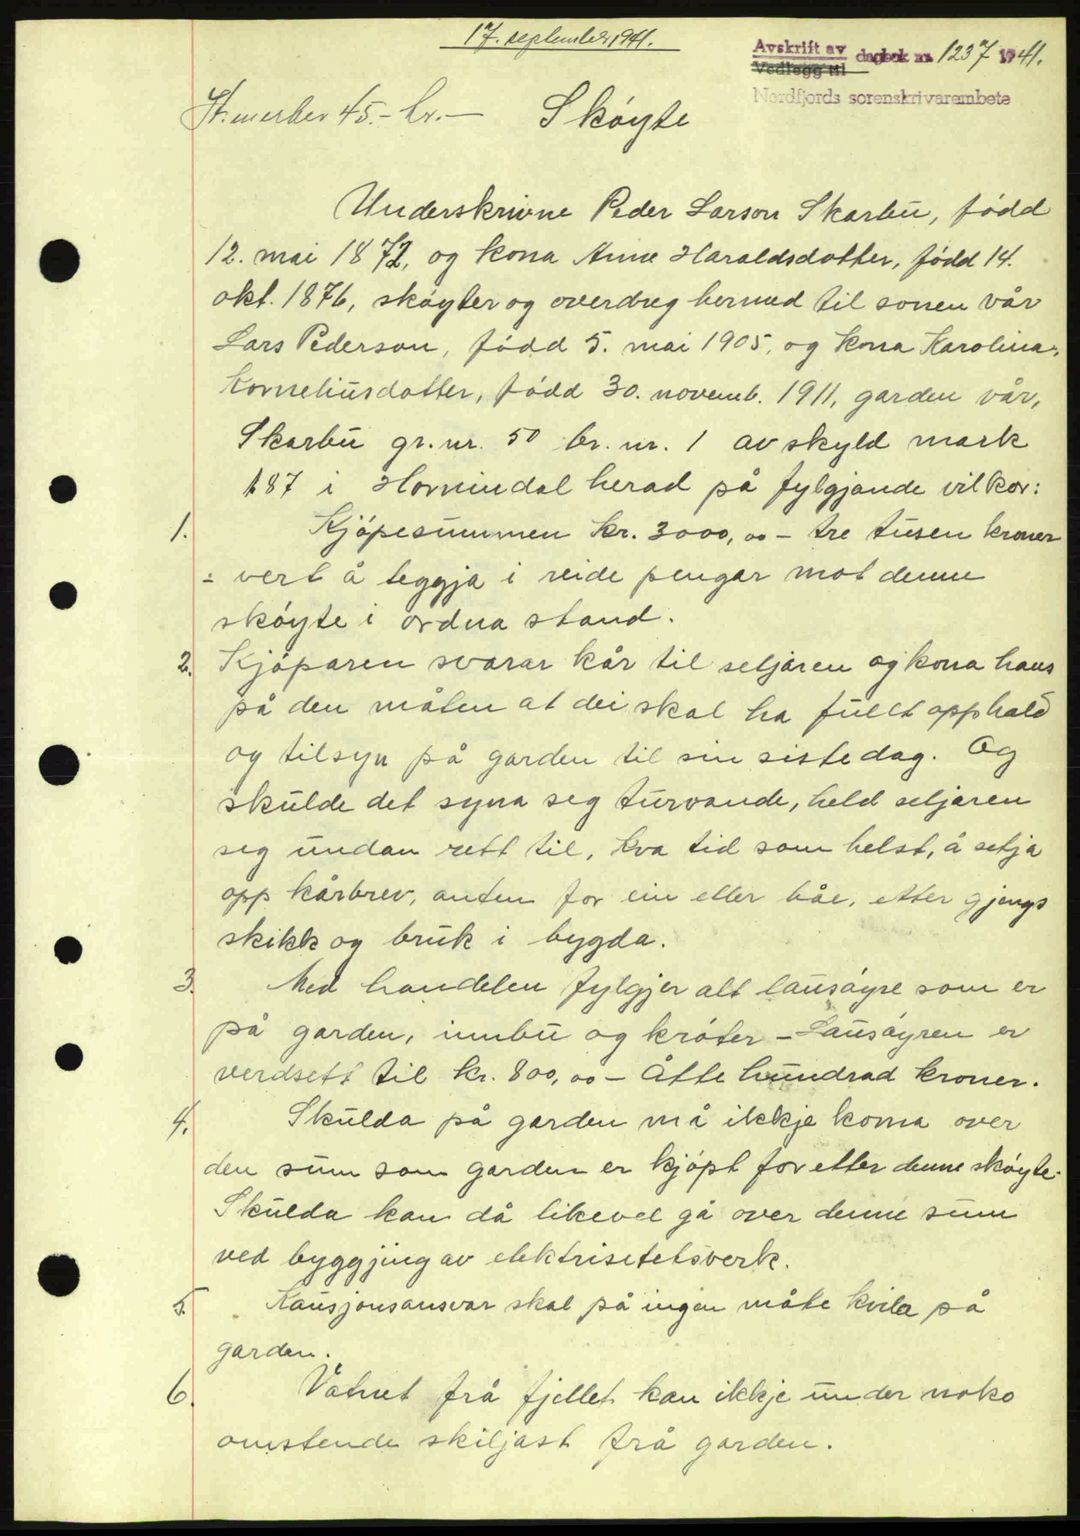 17. september 1941.
Avskrift av dagbok nr. 1237 1941.
Vedlegg til
Nordfjords sorenskrivarembete
St.merker 45.- kr.- Skøyte
Underskrivne Peder Larson Skarbu, fødd
12. mai 1872, og kona Anne Haraldsdotter, fødd 14.
okt. 1876, skøyter og overdreg hermed til sonen vår
Lars Pederson, fødd 5. mai 1905, og kona Karolina
Korneliusdotter, fødd 30. novemb. 1911, garden vår,
Skarbu gr.nr. 50 br.nr. 1 av skyld mark
1.87 i Hornindal herad på fylgjande vilkor:
1. Kjøpesummen kr. 3000,00 - tre tusen kroner
- vert å leggja i reide pengar mot denne
skøyte i ordna stand.
2. Kjøparen svarar kår til seljaren og kona hans
på den måten at dei skal ha fullt opphald
og tilsyn på garden til sin siste dag. Og
skulde det syna seg turvande, held seljaren
seg undan rett til, kva tid som helst, å setja
opp kårbrev, anten for ein eller båe, etter gjengs
skikk og bruk i bygda.
3. Med handelen fylgjer alt lausøyre som er
på garden, innbu og krøter - Lausøyren er
verdsett til kr. 800,00 - Åtte hundrad kroner.
4. Skulda på garden må ikkje koma over
den sum som garden er kjøpt for etter denne skøyte.
Skulda kan då likevel gå over denne sum
ved byggjing av elektrisitetsverk.
5. Kausjonsansvar skal på ingen måte kvila på
garden.
6. Vatnet frå fjellet kan ikkje under noko
omstende skiljast frå garden.